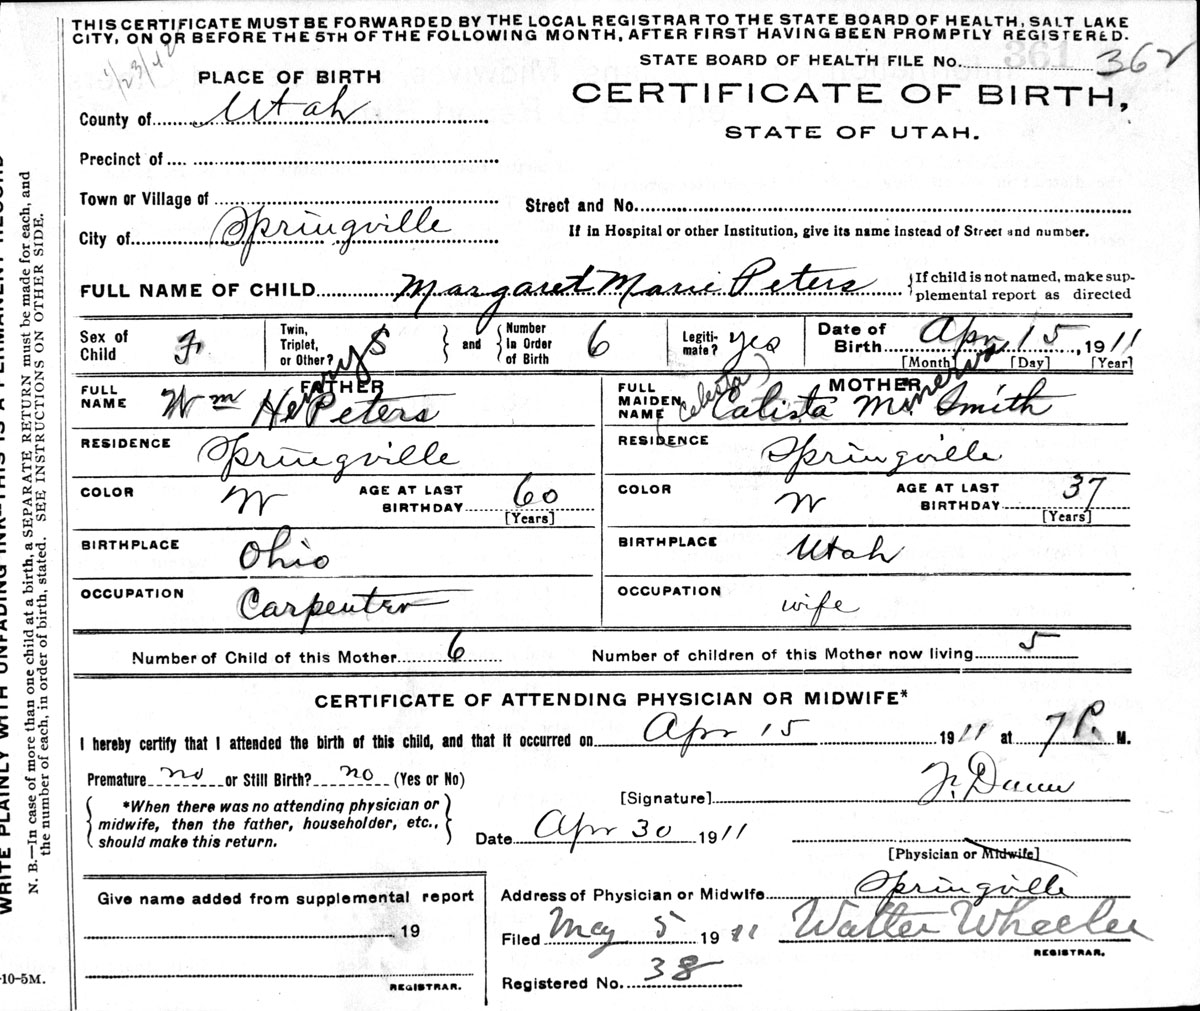 THIS CERTIFICATE MUST BE FORWARDED BY THE LOCAL REGISTRAR TO THE STATE BOARD OF HEALTH, SALT LAKE
CITY, ON OR BEFORE THE 5TH OF THE FOLLOWING MONTH, AFTER FIRST HAVING BEEN PROMPTLY REGISTERED.
1/23/42
STATE BOARD OF HEALTH FILE No. 361 362
PLACE OF BIRTH
CERTIFICATE OF BIRTH,
STATE OF UTAH.
County of Utah
Precinct of
Town or Village of
Street and No.
City of Springville
If in Hospital or other Institution, give its name instead of Street and number.
FULL NAME OF CHILD Margaret Marie Peters
{If child is not named, make sup-
plemental report as directed
Sex of Child F
Twin, Triplet, or Other? S
} and {
Number in Order of Birth 6
Legiti-mate? yes
Date of Birth Apr 15, 1911
[Month] [Day] [Year]
FATHER
FULL NAME Wm Henry Peters
MOTHER
FULL MAIDEN NAME (Celesta) Calista Minerva Smith
RESIDENCE Springville
RESIDENCE Springville
COLOR W
AGE AT LAST BIRTHDAY 60
[Years]
COLOR W
AGE AT LAST BIRTHDAY 37
[Years]
BIRTHPLACE Ohio
BIRTHPLACE Utah
OCCUPATION Carpenter
OCCUPATION wife
Number of Child of this Mother 6
Number of children of this Mother now living 5
CERTIFICATE OF ATTENDING PHYSICIAN OR MIDWIFE*
I hereby certify that I attended the birth of this child, and that it occurred on Apr 15 1911 at 7 P. M.
Premature no or Still Birth? no (Yes or No)
*When there was no attending physician or
midwife, then the father, householder, etc.,
should make this return.
[Signature] F. Dunn
Date Apr 30 1911
[Physician or Midwife]
Give name added from supplemental report
19
REGISTRAR.
Address of Physician or Midwife Springville
Filed May 5 1911 Walter Wheeler
REGISTRAR.
Registered No. 38
WRITE PLAINLY WITH UNFADING INK—THIS IS A PERMANENT RECORD
N. B.—In case of more than one child at a birth, a SEPARATE RETURN must be made for each, and
the number of each, in order of birth, stated. SEE INSTRUCTIONS ON OTHER SIDE.
-10-5M.